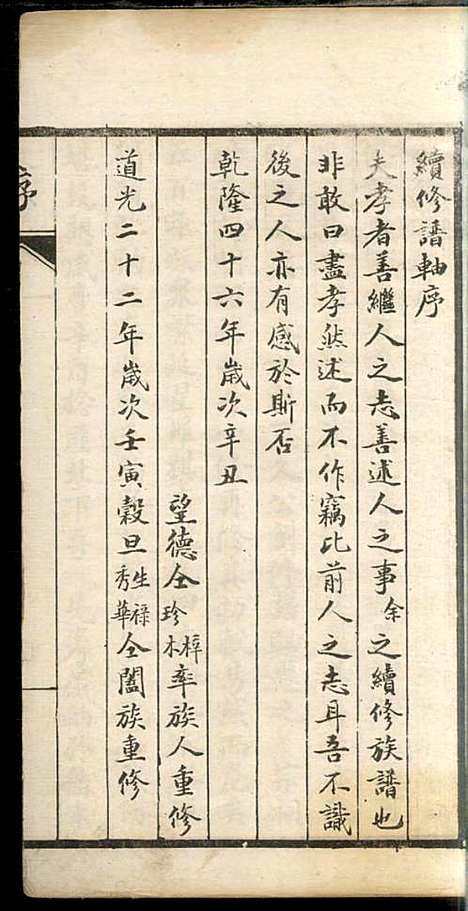 續修譜軸序
夫孝者善繼人之志善述人之事余之續修族譜也
非敢曰盡孝然述而不作竊比前人之志耳吾不識
後之人亦有感於斯否
乾隆四十六年歲次辛丑
望德仝珍梓林率族人重修
道光二十二年歲次壬寅穀旦生祿秀華仝闔族重修
序